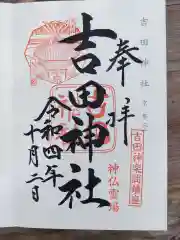 吉田神社
奉拝
吉田神社
令和四年
十月二日
神仏霊場
吉田神楽岡鎮座